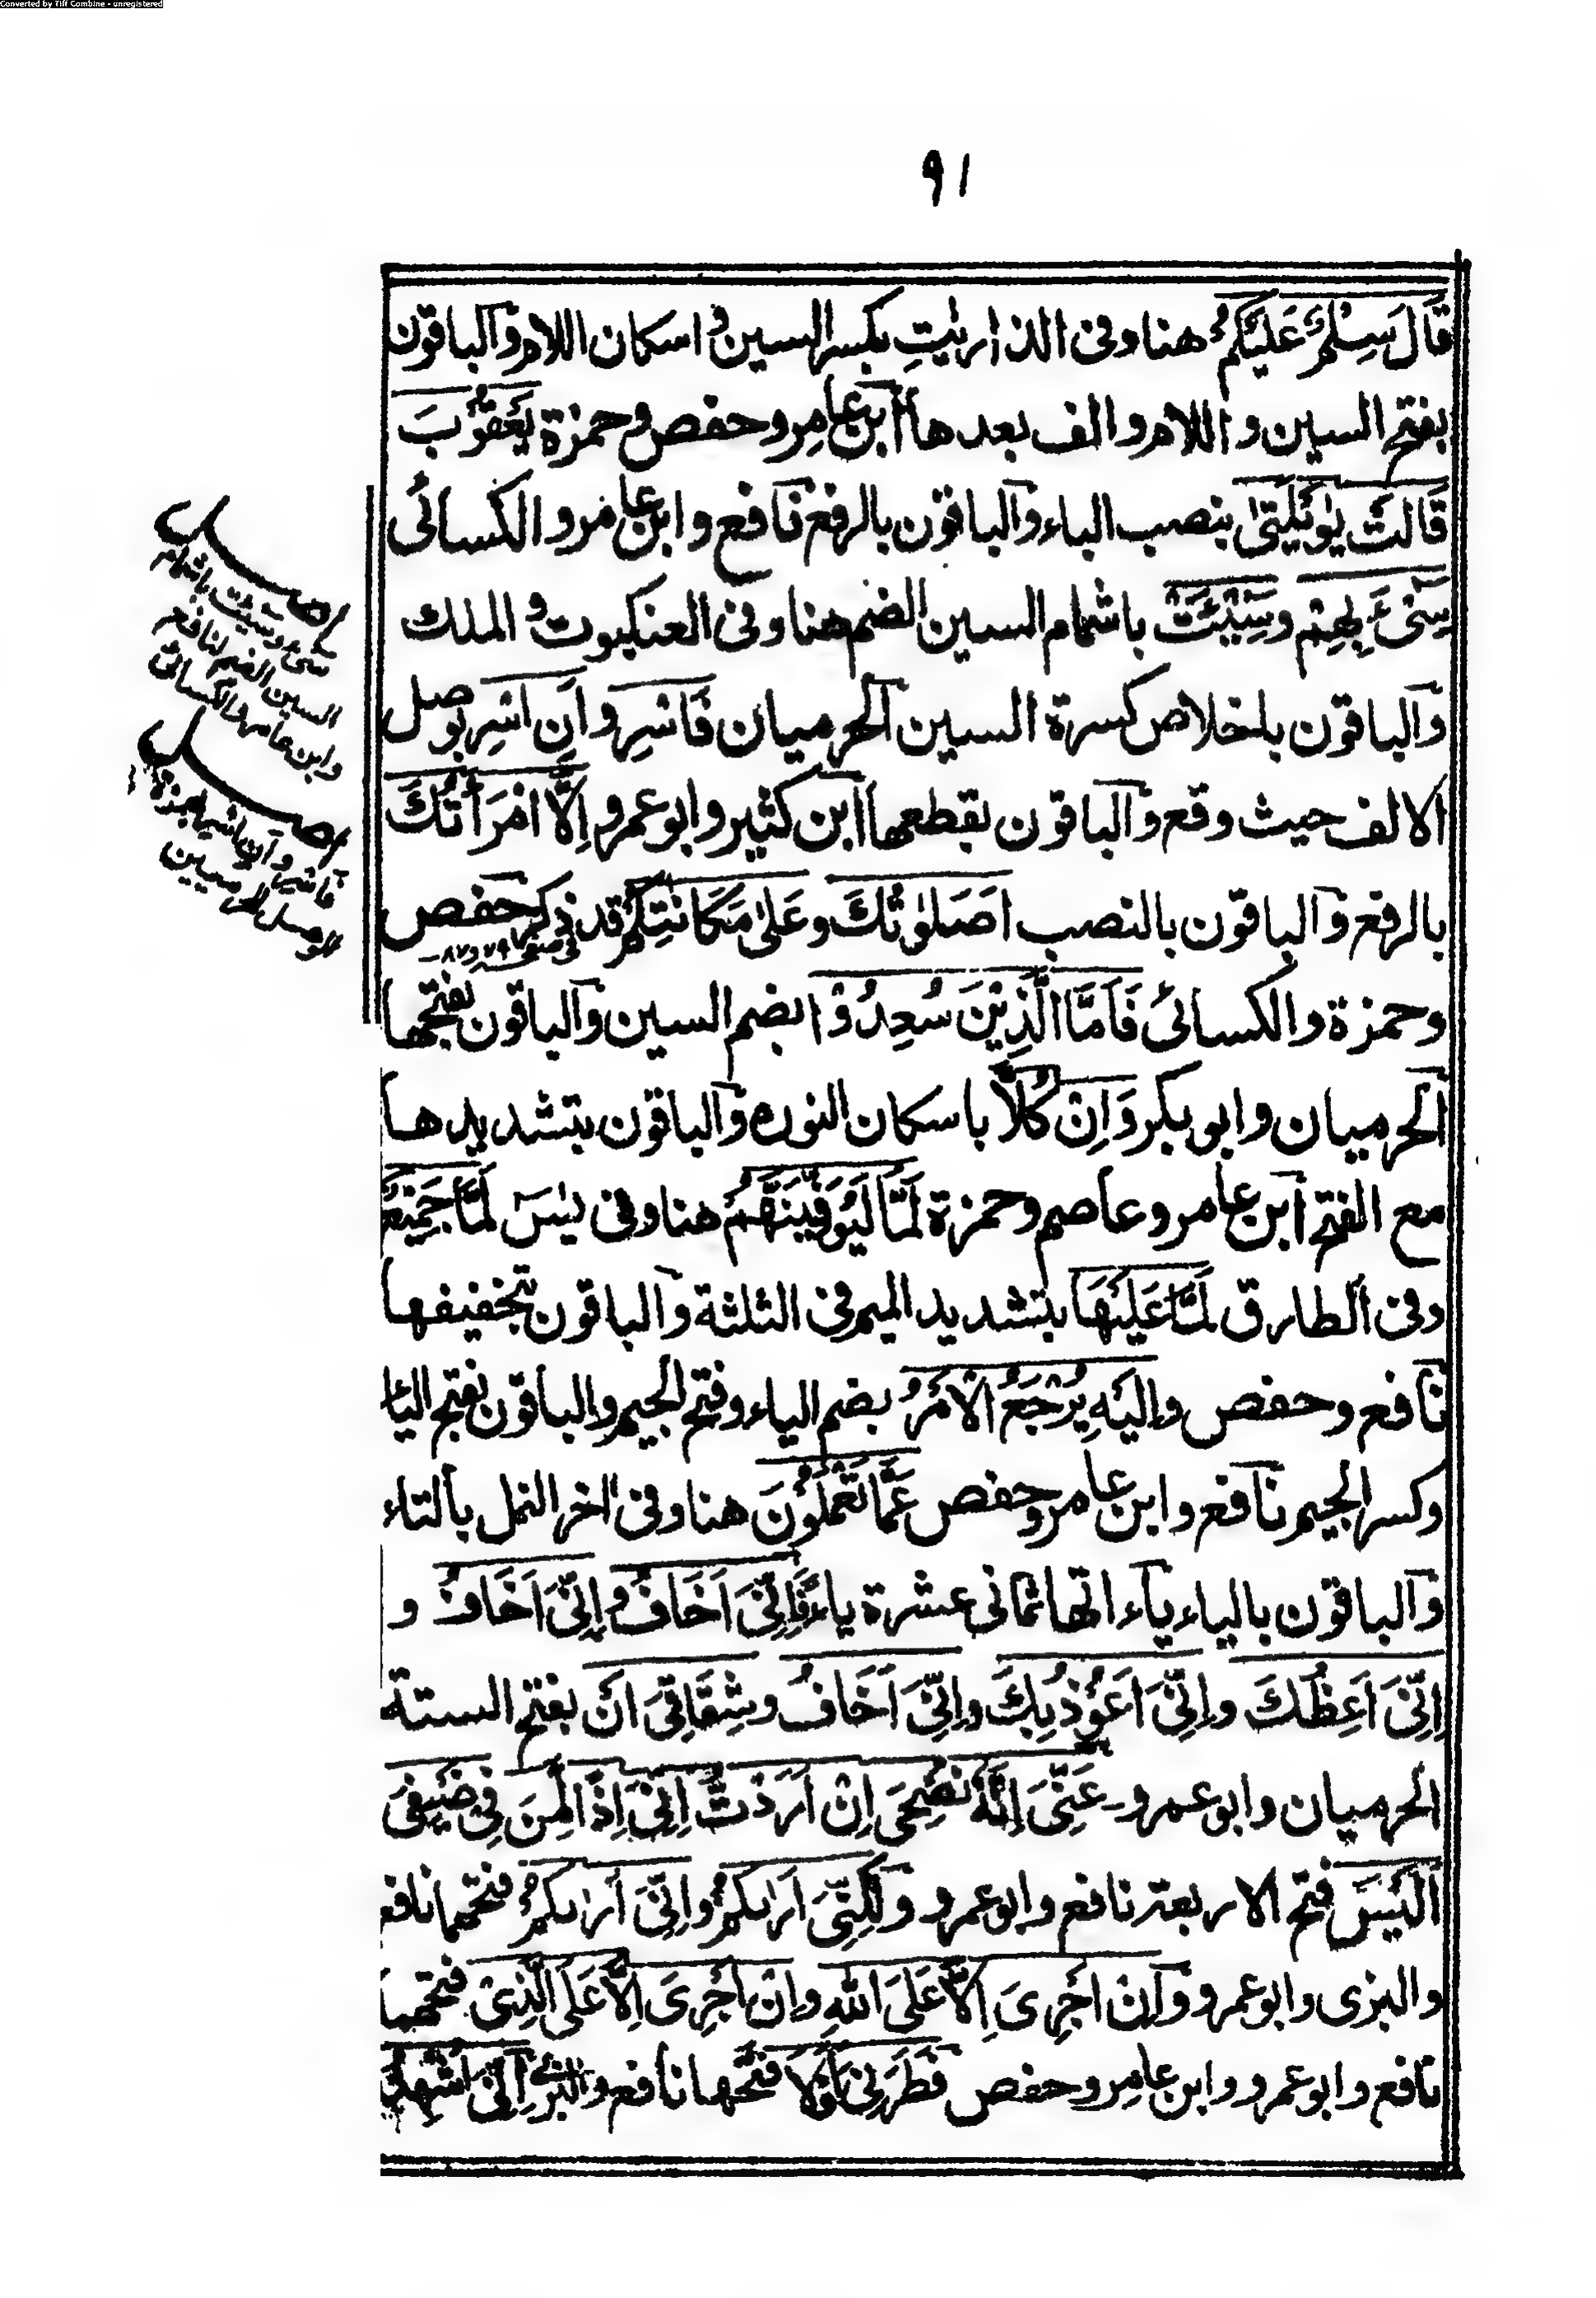 Converted by Tiff Combine - unregistered
٩١
قَالَ سِلْمٌ عَلَيْكُمْ هنا وفى الذاريٰتِ بكسر السين و اسكان اللام وَالباقون
بفتح السين و اللام و الف بعدها اَبن عامِر و حفص و حمزة يَعْقُوْبَ
قَالَتْ يٰوَيْلَتٰى بنصب الباء وَالباقون بالرفع نَافع و ابن عامر و الكسائى
سِىْءَ بِهِمْ و سِيْئَتْ باشمام السين الضم هنا و فى العنكبوت و الملك
وَالباقون باخلاص كسرة السين اَلحرميان فَاسْرِ و اَنِ اسْرِ بوصل
الالف حيث وقع وَالباقون بقطعها اَبن كثير و ابو عمرو اِلَّا امْرَاَتُكَ
بالرفع وَالباقون بالنصب اَصَلٰوتُكَ و عَلىٰ مَكَانَتِكُمْ قد ذكر حَفص
فى صفحه ٧٩ و ٨٧
و حمزة و الكسائى فَاَمَّا الَّذِيْنَ سُعِدُوْا بضم السين وَالباقون بفتحها
اَلحرميان و ابو بكر وَاِنْ كُلًّا باسكان النون وَالباقون بتشديدها
مع الفتح اَبن عامر و عاصم و حمزة لَمَّا لَيُوَفِّيَنَّهُمْ هنا و فى يٰسٓ لَمَّا جَمِيْعٌ
و فى الطارق لَمَّا عَلَيْهَا بتشديد الميم فى الثلثة وَالباقون بتخفيفها
نَافع و حفص وَاِلَيْهِ يُرْجَعُ الْاَمْرُ بضم الياء و فتح الجيم والباقون بفتح اليا
و كسر الجيم نَافع و ابن عامر و حفص عَمَّا تَعْمَلُوْنَ هنا و فى اخر النمل بالتاء
وَالباقون بالياء يَاءاتها ثمانى عشرة ياء فَاِنِّىَ اَخَافُ و اِنِّىَ اَخَافُ و
اِنِّىَ اَعِظُكَ و اِنِّىَ اَعُوْذُ بِكَ و اِنِّىَ اَخَافُ و شِقَاقِىَ اَنْ بفتح الستة
الحرميان و ابو عمرو - عَنِّىَ اِنَّهٗ نُصْحِىَ اِنْ اَرَدْتُّ اِنِّىَ اِذًا لَّمِنَ فِىْ ضَيْفِىَ
اَلَيْسَ فتح الاربعة نافع و ابو عمرو وَلٰكِنِّىَ اَرٰىكُمْ و اِنِّىَ اَرٰىكُمْ فتحهما نافع
و البزى و ابو عمرو وَاِنْ اَجْرِىَ اِلَّا عَلَى اللّٰهِ و اِنْ اَجْرِىَ اِلَّا عَلَى الَّذِىْ فتحهما
نافع و ابو عمرو و ابن عامر و حفص فَطَرَنِىَ اَفَلَا فتحها نافع و البزى اِنِّىَ اُشْهِدُ
سىء و سيئت باشمام
السين الضم لنافع
و ابن عامر و الكسائى
فاسر و ان اسر بهمزة
الوصل للحرميين